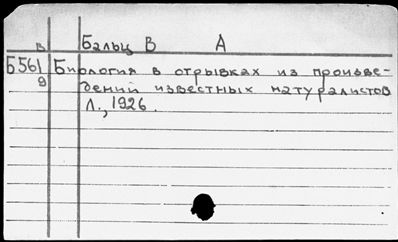 Бальц В А
в
Б561 Биология в отрывках из произве-
9 дений известных натуралистов
Л., 1926.